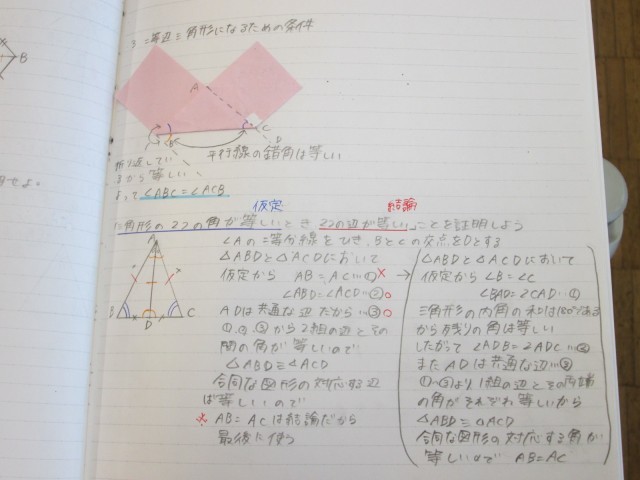 B
3 二等辺三角形になるための条件
A
B
C
D
折り返してい
るから等しい
平行線の錯角は等しい
よって∠ABC=∠ACB
仮定
結論
三角形の2つの角が等しいとき2つの辺が等しいことを証明しよう
∠Aの二等分線をひき、BとCの交点をDとする
△ABDと△ACDにおいて
仮定から AB=AC…①×
∠ABD=∠ACD…②○
ADは共通な辺だから…③○
①,②,③から2組の辺とその
間の角が等しいので
△ABD≡△ACD
合同な図形の対応する辺
は等しいので
※ AB=ACは結論だから
最後に使う
A
B
D
C
→
△ABDと△ACDにおいて
仮定から ∠B=∠C
∠BAD=∠CAD…①
三角形の内角の和は180°である
から残りの角は等しい
したがって ∠ADB=∠ADC…②
また ADは共通な辺…③
①~③より1組の辺とその両端
の角がそれぞれ等しいから
△ABD≡△ACD
合同な図形の対応する角が
等しいので AB=AC